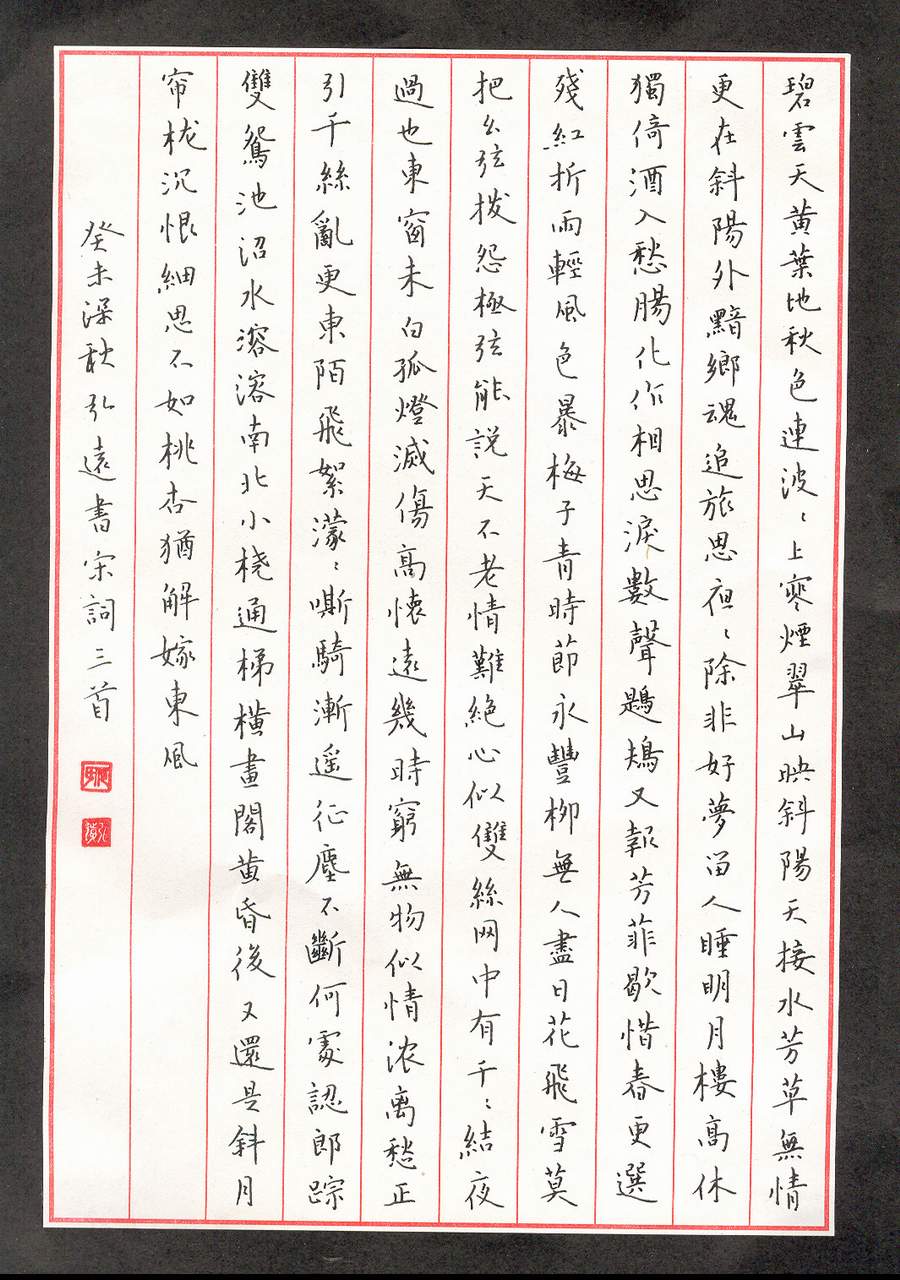 碧雲天黄葉地秋色連波〻上寒煙翠山映斜陽天接水芳草無情
更在斜陽外黯鄉魂追旅思夜〻除非好夢留人睡明月樓高休
獨倚酒入愁腸化作相思淚數聲鶗鴂又報芳菲歇惜春更選
殘紅折雨輕風色暴梅子青時節永豐柳無人盡日花飛雪莫
把幺弦撥怨極弦能説天不老情難絶心似雙絲网中有千〻結夜
過也東窗未白孤燈滅傷高懷遠幾時窮無物似情浓离愁正
引千絲亂更東陌飛絮濛〻嘶騎漸遥征塵不斷何處認郎踪
雙鴛池沼水溶溶南北小桡通梯橫畫閣黄昏後又還是斜月
帘栊沉恨細思不如桃杏猶解嫁東風
癸未深秋弘遠書宋詞三首